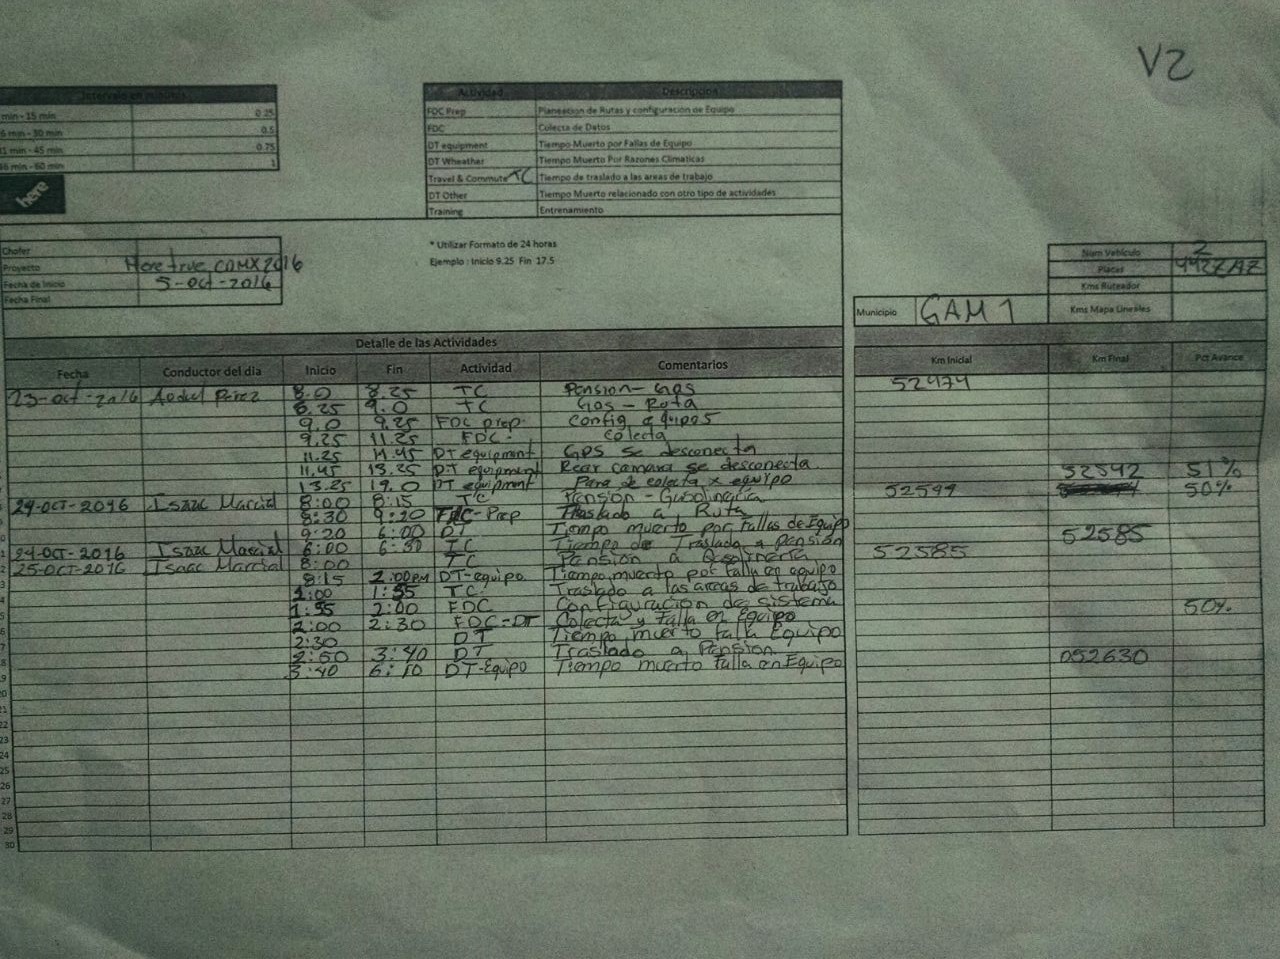 V2
Intervalo en minutos
min - 15 min 0.25
6 min - 30 min 0.5
31 min - 45 min 0.75
46 min - 60 min 1
here
Actividad Descripcion
FDC Prep Planeacion de Rutas y configuracion de Equipo
FDC Colecta de Datos
DT equipment Tiempo Muerto por Fallas de Equipo
DT Wheather Tiempo Muerto Por Razones Climaticas
Travel & Commute TC Tiempo de traslado a las areas de trabajo
DT Other Tiempo Muerto relacionado con otro tipo de actividades
Training Entrenamiento
* Utilizar Formato de 24 horas
Ejemplo : Inicio 9.25 Fin 17.5
Chofer
Proyecto Here true CDMX 2016
Fecha de Inicio 5-oct-2016
Fecha Final
Num Vehículo 2
Placas 442ZAZ
Kms Ruteador
Kms Mapa Lineales
Municipio GAM 1
Detalle de las Actividades
Fecha Conductor del dia Inicio Fin Actividad Comentarios Km Inicial Km Final Pct Avance
23-oct-2016 Perez 8.0 8.25 TC Pension - Gas 52474
8.25 9.0 TC Gas - Ruta
9.0 9.25 FDC prep. Config equipos
9.25 11.25 FDC. Colecta
11.25 11.45 DT equipment GPS se desconecta
11.45 13.25 DT equipment Rear camara se desconecta 52542 51%
13.25 19.0 DT equipment Para de colecta x equipo
24-OCT-2016 Isaac Marcial 8:00 8:15 TC Pensión - Gasolinería 52544 50%
8:30 9:20 FDC-Prep Traslado a Ruta
9:20 6:00 DT Tiempo muerto por Fallas de Equipo
24-OCT-2016 Isaac Marcial 6:00 6:30 TC Tiempo de Traslado a pensión 52585
25-OCT-2016 Isaac Marcial 8:00 TC Pensión a Gasolinería 52585
8:15 2:00PM DT-equipo Tiempo muerto por falla en equipo
1:00 1:55 TC Traslado a las areas de trabajo
1:55 2:00 FDC Configuración de sistema 50%
2:00 2:30 FDC-DT Colecta y Falla en Equipo
2:30 DT Tiempo muerto falla Equipo
2:50 3:40 DT Traslado a Pensión
3:40 6:10 DT-Equipo Tiempo muerto Falla en Equipo 052630
20
21
22
23
24
25
26
27
28
29
30